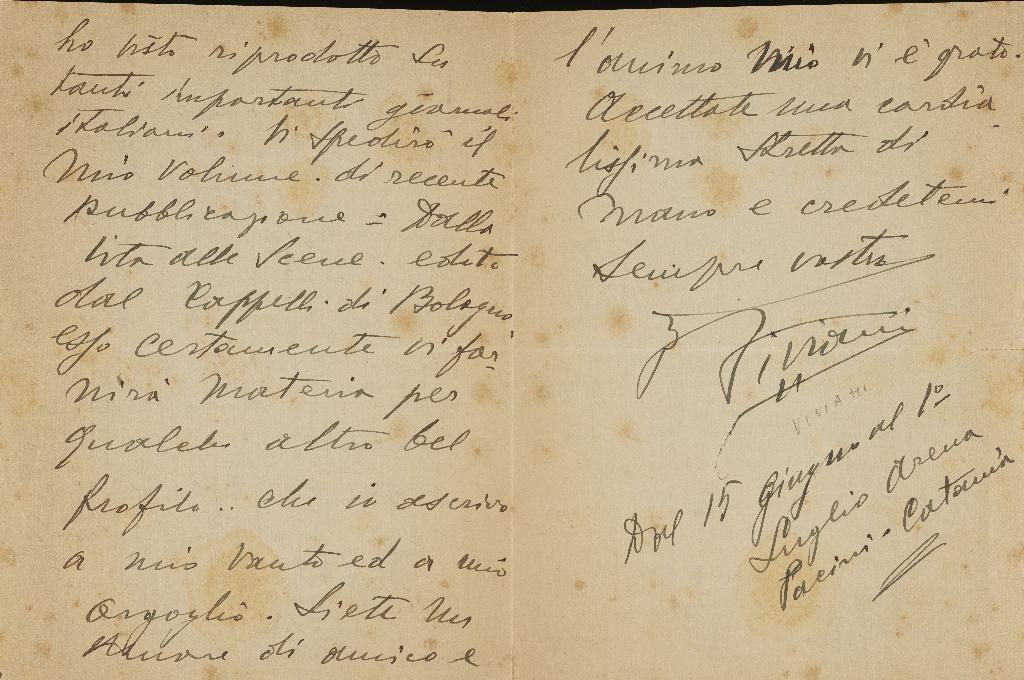 ho visto riprodotto su
tanti importanti giornali
italiani. Vi spedirò il
mio volume. di recente
pubblicazione = Dalla
Vita alle Scene. edito
dal Cappelli. di Bologna
esso certamente vi for-
nirà materia per
qualche altro bel
profilo.. che io ascrivo
a mio vanto ed a mio
orgoglio. Siete un
amore di amico e
l'animo mio vi è grato.
Accettate una cordia
lissima stretta di
mano e credetemi
sempre vostro
Viviani
VIVIANI
Dal 15 Giugno al 1º
Luglio Arena
Pacini - Catania